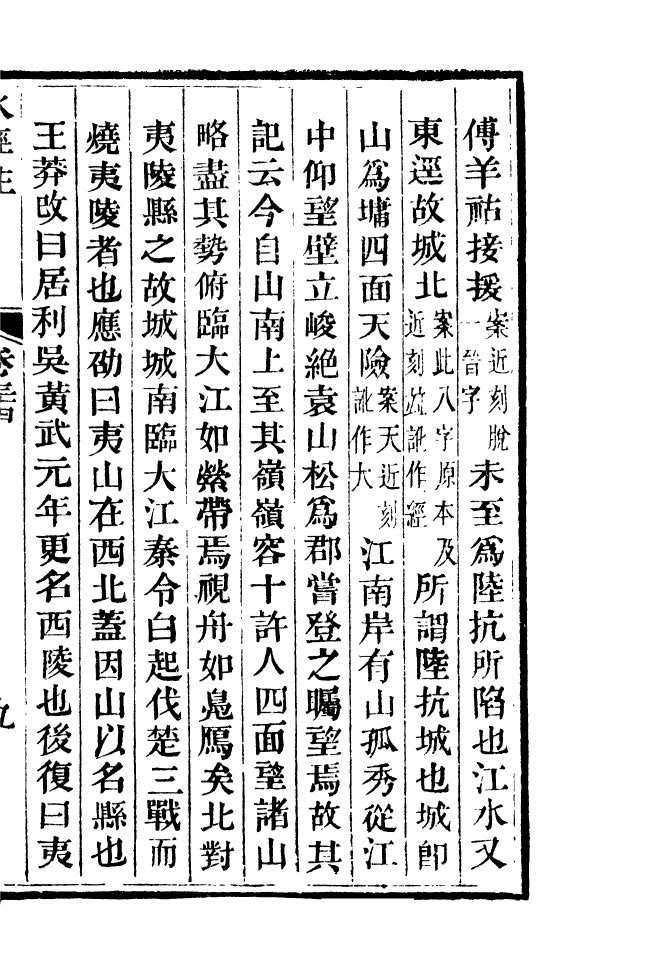 傅羊祜接援案近刻脫一晉字未至爲陸抗所陷也江水又
東逕故城北案此八字原本及近刻竝訛作經所謂陸抗城也城卽
山爲墉四面天險案天近刻訛作大江南岸有山孤秀從江
中仰望壁立峻絶袁山松爲郡嘗登之矚望焉故其
記云今自山南上至其嶺嶺容十許人四面望諸山
略盡其勢俯臨大江如縈帶焉視舟如鳧鴈矣北對
夷陵縣之故城城南臨大江秦令白起伐楚三戰而
燒夷陵者也應劭曰夷山在西北蓋因山以名縣也
王莽改曰居利吳黃武元年更名西陵也後復曰夷
水經注 卷三十四 九